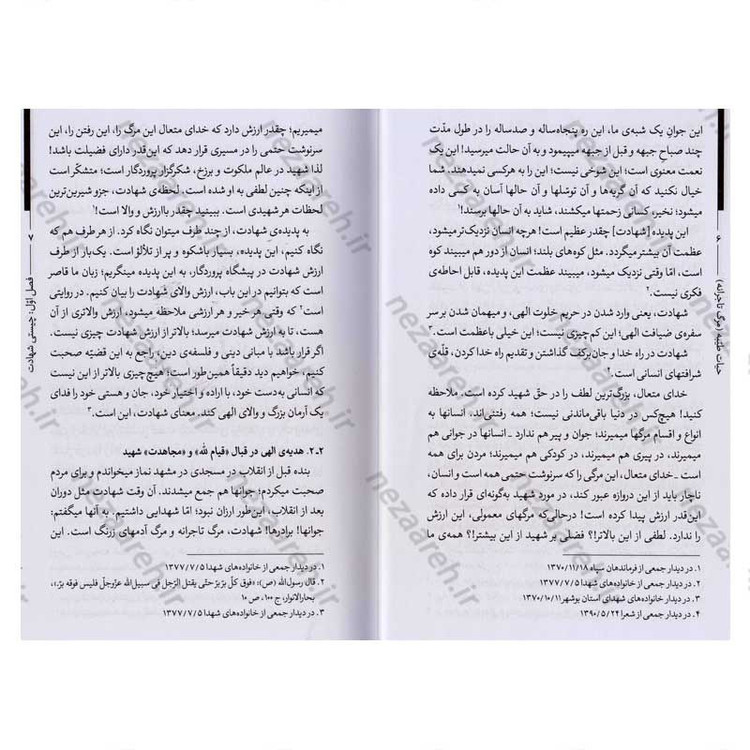 این جوانِ یک شبه‌ی ما، این ره پنجاه‌ساله و صدساله را در طول مدّت
چند صباحِ جبهه و قبل از جبهه میپیمود و به آن حالت میرسید! این یک
نعمت معنوی است؛ این شوخی نیست؛ این را به هرکسی نمیدهند. شما
خیال نکنید که آن گریه‌ها و آن توسّلها و آن حالها آسان به کسی داده
میشود؛ نخیر، کسانی زحمتها میکشند، شاید به آن حالها برسند!۱
این پدیده [شهادت] چقدر عظیم است! هرچه انسان نزدیک‌تر میشود،
عظمت آن بیشتر میگردد. مثل کوه‌های بلند؛ انسان از دور هم میبیند کوه
است، امّا وقتی نزدیک میشود، میبیند عظمت این پدیده، قابل احاطه‌ی
فکری نیست.۲
شهادت، یعنی وارد شدن در حریم خلوت الهی، و میهمان شدن بر سر
سفره‌ی ضیافت الهی؛ این کم چیزی نیست؛ این خیلی باعظمت است.۳
شهادت در راه خدا و جان برکف گذاشتن و تقدیم راه خدا کردن، قلّه‌ی
شرافتهای انسانی است.۴
خدای متعال، بزرگ‌ترین لطف را در حقّ شهید کرده است. ملاحظه
کنید! هیچ‌کس در دنیا باقی‌ماندنی نیست؛ همه رفتنی‌اند. انسانها به
انواع و اقسام مرگها میمیرند؛ جوان و پیر هم ندارد ـ انسانها در جوانی هم
میمیرند، در پیری هم میمیرند، در کودکی هم میمیرند؛ مردن برای همه
است ـ خدای متعال، این مرگی را که سرنوشت حتمی همه است و انسان،
ناچار باید از این دروازه عبور کند، در مورد شهید به‌گونه‌ای قرار داده که
این‌قدر ارزش پیدا کرده است! درحالی‌که مرگهای معمولی، این ارزش
را ندارد. لطفی از این بالاتر!؟ فضلی بر شهید از این بیشتر!؟ همه‌ی ما
۱. در دیدار جمعی از فرماندهان سپاه ۱۳۷۰/۱۱/۱۸
۲. در دیدار جمعی از خانواده‌های شهدا ۱۳۷۷/۷/۵
۳. در دیدار خانواده‌های شهدای استان بوشهر ۱۳۷۰/۱۰/۱۱
۴. در دیدار جمعی از شعرا ۱۳۹۰/۵/۲۴
۶
حیات طیّبه (مرگ تاجرانه)
میمیریم؛ چقدر ارزش دارد که خدای متعال این مرگ را، این رفتن را، این
سرنوشت حتمی را در مسیری قرار دهد که این‌قدر دارای فضیلت باشد!
لذا شهید در عالم ملکوت و برزخ، شکرگزار پروردگار است؛ متشکّر است
از اینکه چنین لطفی به او شده است. لحظه‌ی شهادت، جزو شیرین‌ترین
لحظات هر شهیدی است. ببینید چقدر باارزش و والا است!۱
به پدیده‌ی شهادت، از چند طرف میتوان نگاه کرد. از هر طرف هم که
نگاه کنیم، این پدیده، بسیار باشکوه و پر از تلألؤ است. یک‌بار از طرف
ارزش شهادت در پیشگاه پروردگار، به این پدیده مینگریم؛ زبان ما قاصر
است که بتوانیم در این باب، ارزش والای شهادت را بیان کنیم. در روایتی
است۲ که وقتی هر خیر و هر ارزشی ملاحظه میشود، ارزش والاتری از آن
هست، تا به ارزش شهادت میرسد؛ بالاتر از ارزش شهادت چیزی نیست.
اگر قرار باشد با مبانی دینی و فلسفه‌ی دین، راجع به این قضیّه صحبت
کنیم، خواهیم دید دقیقاً همین‌طور است؛ هیچ چیزی بالاتر از این نیست
که انسانی به‌دست خود، با اراده و اختیار خود، جان و هستی خود را فدای
یک آرمان بزرگ و والای الهی کند. معنای شهادت، این است.۳
۲ـ۲. هدیه‌ی الهی در قبال «قیام لله» و «مجاهدت» شهید
بنده قبل از انقلاب در مسجدی در مشهد نماز میخواندم و برای مردم
صحبت میکردم؛ جوانها هم جمع میشدند. آن وقت شهادت مثل دوران
بعد از انقلاب، این‌طور ارزان نبود؛ امّا شهدایی داشتیم. به آنها میگفتم:
جوانها! برادرها! شهادت، مرگ تاجرانه و مرگ آدمهای زرنگ است. این
۱. در دیدار جمعی از خانواده‌های شهدا ۱۳۷۷/۷/۵
۲. قال رسول‌الله (ص): «فوق کلّ برّ برّ حتّی یقتل الرّجل فی سبیل‌الله عزّوجلّ فلیس فوقه برّ»،
بحارالانوار، ج ۱۰۰، ص ۱۰
۳. در دیدار جمعی از خانواده‌های شهدا ۱۳۷۷/۷/۵
۷
فصل اوّل: چیستی شهادت
nezaareh.ir